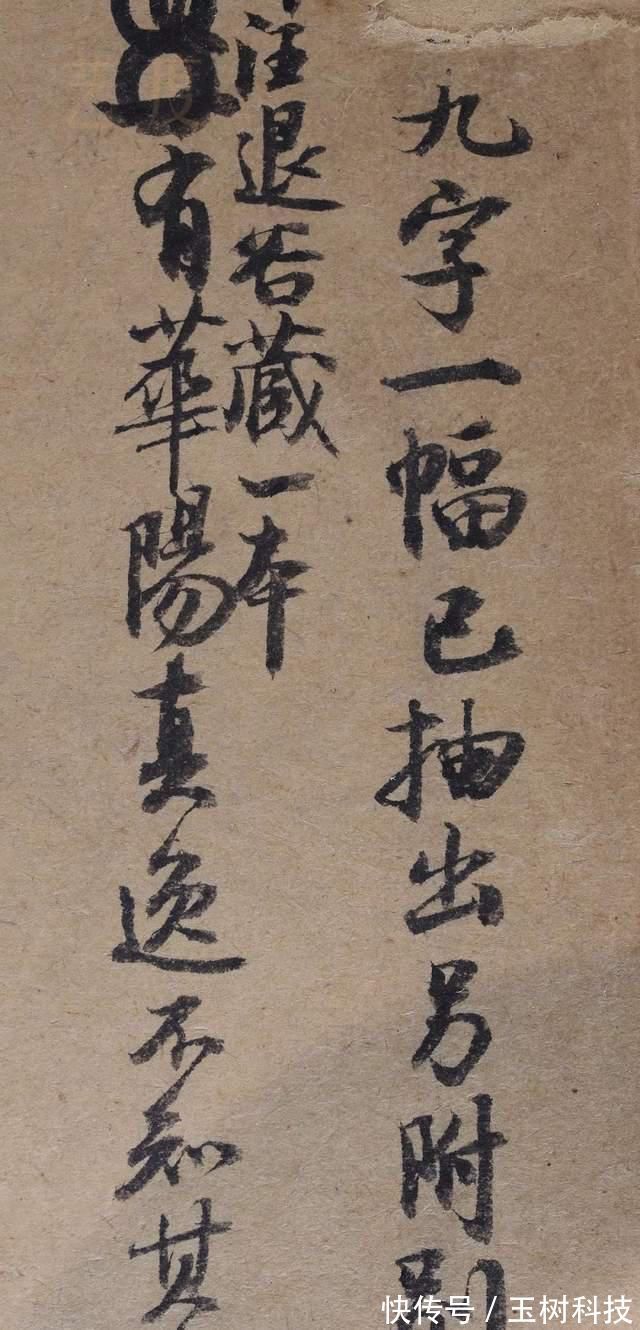 九字一幅已抽出另附別
注退谷藏一本
有華陽真逸不知其
快传号/玉树科技